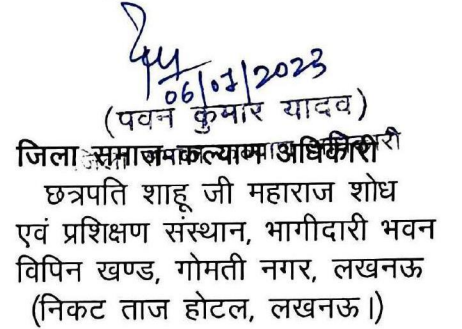 06/07/2023
(पवन कुमार यादव)
जिला समाज कल्याण अधिकारी
छत्रपति शाहू जी महाराज शोध
एवं प्रशिक्षण संस्थान, भागीदारी भवन
विपिन खण्ड, गोमती नगर, लखनऊ
(निकट ताज होटल, लखनऊ।)